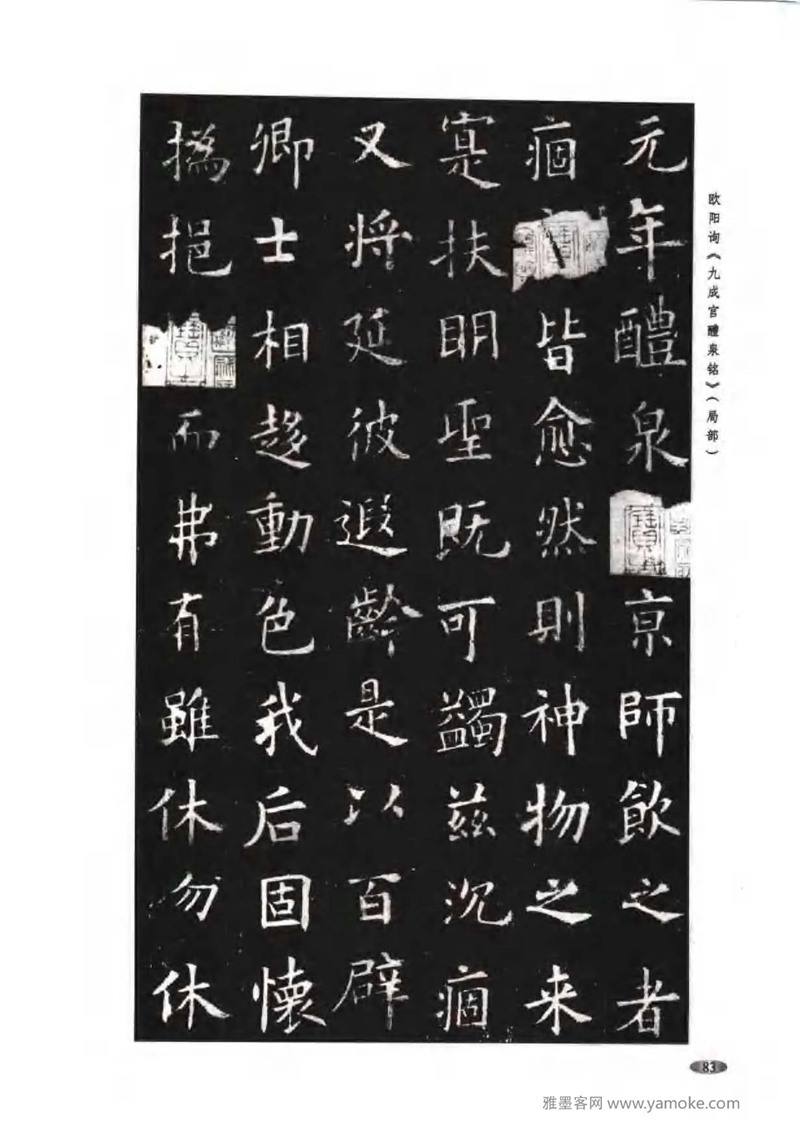 元年醴泉京師飲之者
痼皆愈然則神物之来
寔扶明聖既可蠲兹沉痼
又将延彼遐齡是以百辟
卿士相趍動色我后固懐
撝挹而弗有雖休勿休
欧阳询《九成宫醴泉铭》（局部）
83
雅墨客网 www.yamoke.com